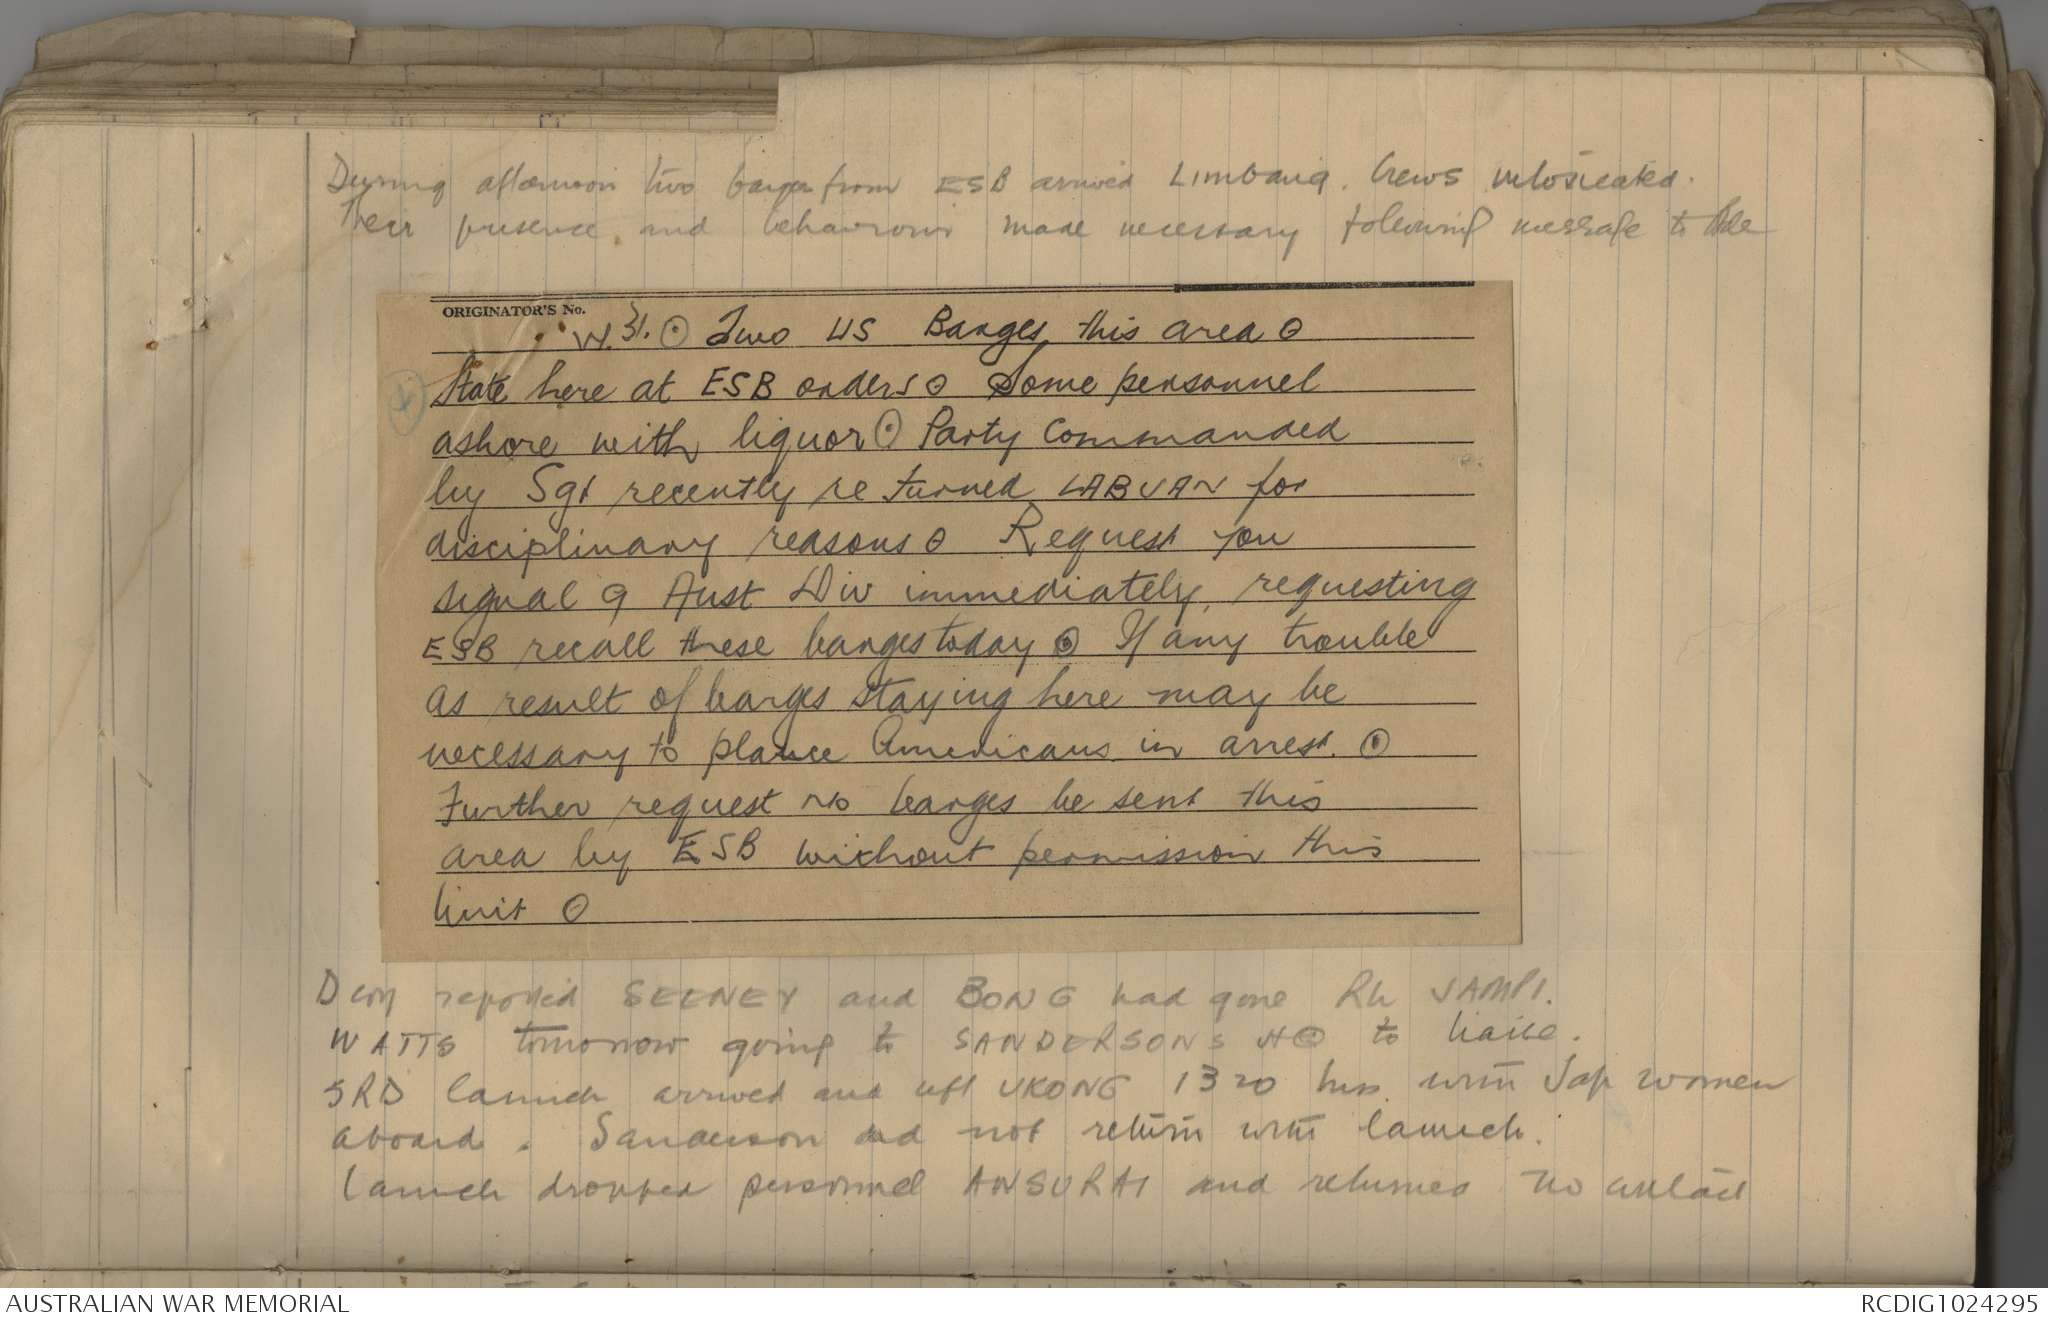 During afternoon two barges from ESB arrived Limbang. Crews intoxicated.
Their presence and behaviour made necessary following message to Bde
ORIGINATOR'S No.
W.31. ⊙ Two US Barges this area ⊙
State here at ESB orders ⊙ Some personnel
ashore with liquor ⊙ Party Commanded
by Sgt recently returned LABUAN for
disciplinary reasons ⊙ Request you
signal 9 Aust Div immediately, requesting
ESB recall these barges today ⊙ If any trouble
as result of barges staying here may be
necessary to place Americans in arrest. ⊙
Further request no barges be sent this
area by ESB without permission this
Unit ⊙
reported SEENEY and BONG had gone Rh JAMPI.
WATTS tomorrow going to SANDERSONS HQ to liaise.
SRD launch arrived and left UKONG 1320 hrs with Jap women
aboard. Sanderson did not return with launch.
Launch dropped personnel ANSURAI and returned no contact
AUSTRALIAN WAR MEMORIAL
RCDIG1024295